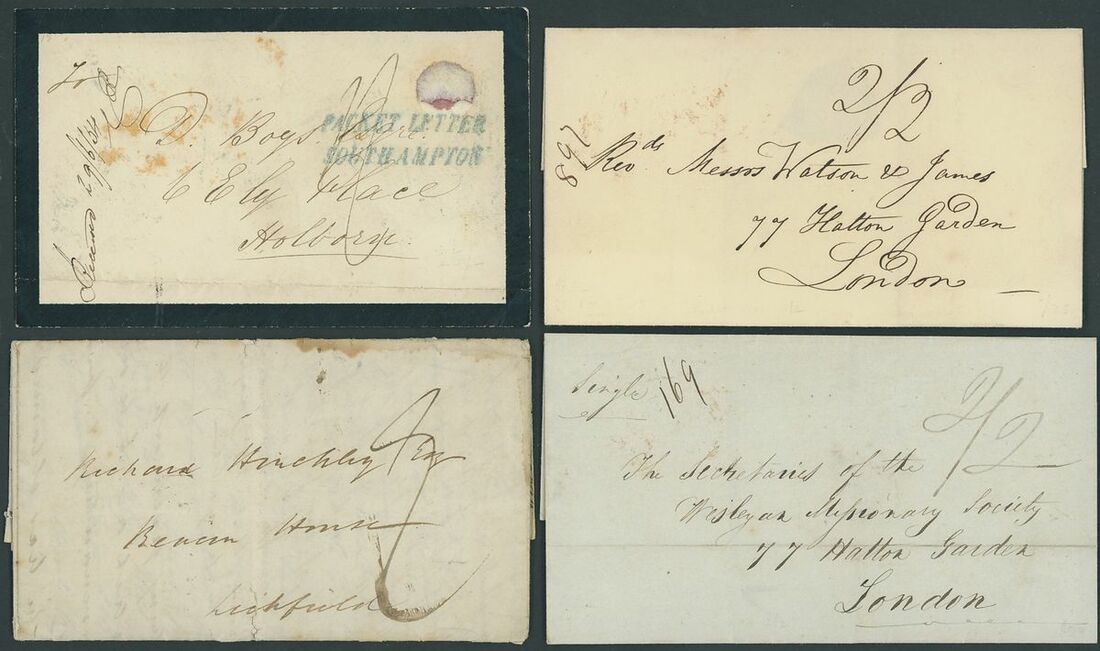 To
D. Boys
6 Ely Place
Holborn
PACKET LETTER
SOUTHAMPTON
2/2
897
Revds Messrs Watson & James
77 Hatton Garden
London
Richard Hinckley Esq
Beacon House
Lichfield
Single
169
2/2
The Secretaries of the
Wesleyan Missionary Society
77 Hatton Garden
London